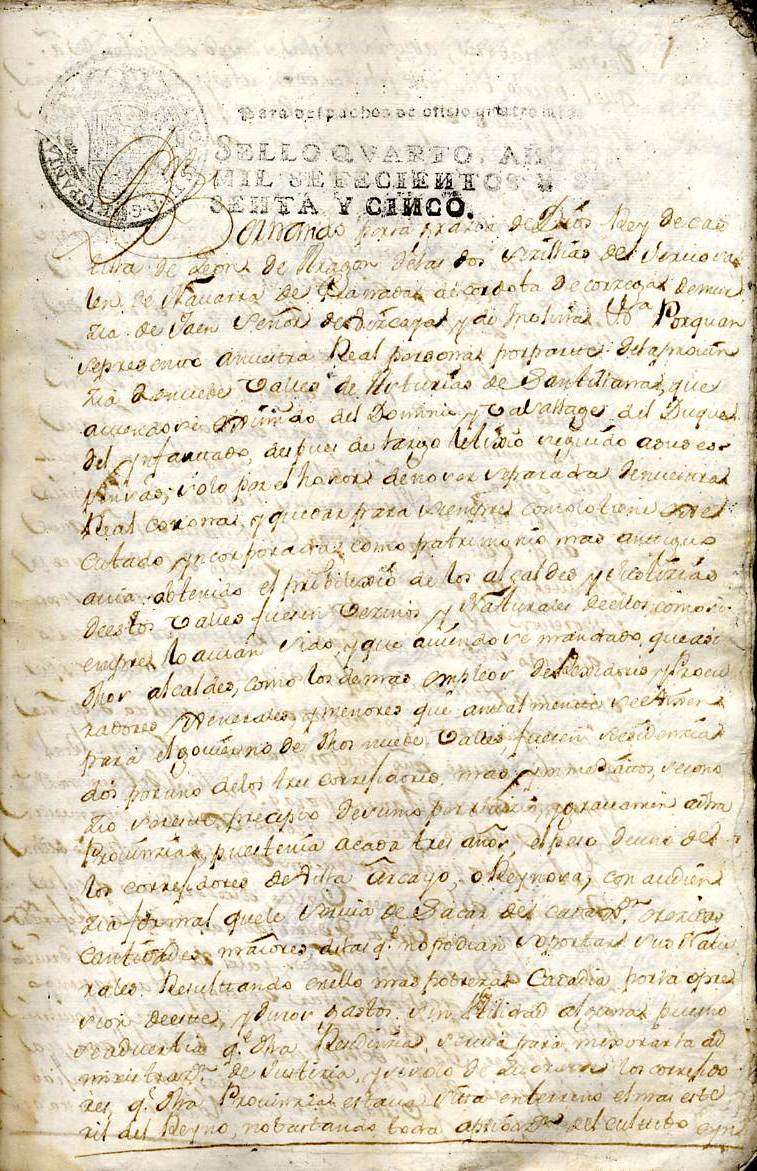 Para despachos de oficio quatro mrs.
SELLO QVARTO, AÑO DE
MIL SETECIENTOS Y SE
SENTA Y CINCO.
Dn Fernando por la grazia de Dios Rey de Cas
tilla de Leon de Aragon delas dos Sizilias de Jerusa
len de Navarra de Granada de Cordova de Corzega de Mur
zia de Jaen Señor de Vizcaya y de Molina &a Porquan
se presento a nuestra Real persona por parte dela provin
zia de nuebe Valles de Asturias de Santillana, que
aviendo redimido del Dominio y Vasallage del Duque
del Ynfantado, despues de largo letixio seguido a sus es
pensas, solo por el honor de no ser separada de nuestra
Real corona, y quedar para siempre como lo tiene
cutado yncorporada como patrimonio mas antiguo
avia obtenido el pribilexio de los alcaldes y Justizias
de estos Valles fuesen vezinos y Naturales de ellos, como si
empre lo avian sido, y que aviendose mandado que asi
dhos alcaldes, como los demas empleos de Rexidores y Procu
radores Generales, y menores que anualmente se elixen
para el govierno de dhos nuebe Valles fuesen residencia
dos por uno de los tres correxidores mas ymmediatos, se cono
zio ser esto prezipio de sumo perjuizio, y gravamen a dha
Provinzia, pues tenia a cada tres años, el peso de uno de
los correxidores de Villa Arcayo, o Reynosa, con audien
zia formal que le servia de sacar del cada crezidas
cantidades maiores, delas qe no podian soportar sus Natu
rales. Resultando en ello mas pobreza cada dia por la opre
sion de este, y duros gastos sin utilidad alguna, pues no
se advertia qe dha Residenzia servia para mexorar la ad
ministrazn de Justizia, y solo de lucrarse los correxido
res, qe dha Provinzia estava sita en terreno el mas este
ril del Reyno, no bastando toda aplicazn del cultibo